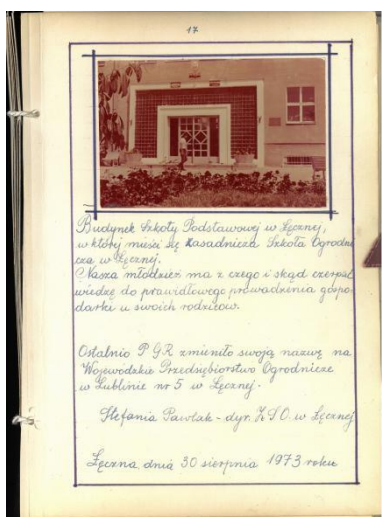 17
Budynek Szkoły Podstawowej w Łęcznej,
w której mieści się Zasadnicza Szkoła Ogrodni
cza w Łęcznej.
Nasza młodzież ma z czego i skąd czerpać
wiedzę do prawidłowego prowadzenia gospo-
darki u swoich rodziców.
Ostatnio PGR zmieniło swoją nazwę na
Wojewódzkie Przedsiębiorstwo Ogrodnicze
w Lublinie nr 5 w Łęcznej.
Stefania Pawlak - dyr. Z S O. w Łęcznej
Łęczna dnia 30 sierpnia 1973 roku